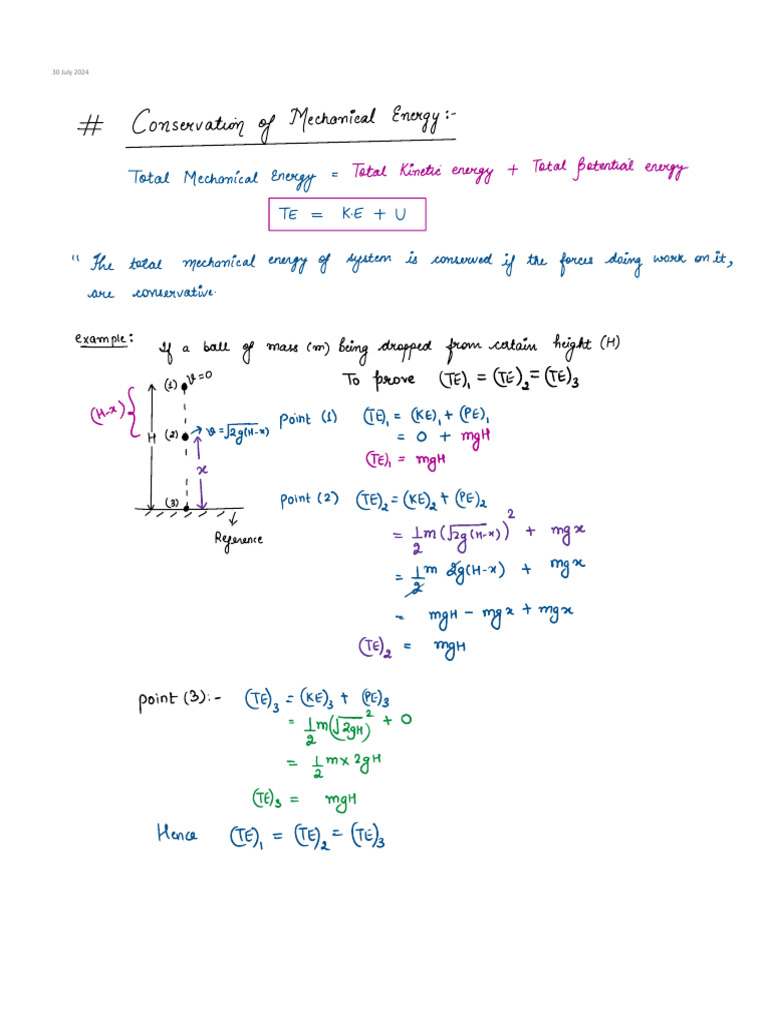 30 July 2024
# Conservation of Mechanical Energy:-
Total Mechanical Energy = Total Kinetic energy + Total Potential energy
TE = K.E + U
" The total mechanical energy of system is conserved if the forces doing work on it,
are conservative.
example: If a ball of mass (m) being dropped from certain height (H)
To prove (TE)₁ = (TE)₂ = (TE)₃
(1) v=0
(H-x)
H (2) v = √2g(H-x)
x
(3)
Reference
Point (1) (TE)₁ = (KE)₁ + (PE)₁
= 0 + mgH
(TE)₁ = mgH
Point (2) (TE)₂ = (KE)₂ + (PE)₂
= 1/2 m (√2g(H-x))² + mgx
= 1/2 m 2g(H-x) + mgx
= mgH - mgx + mgx
(TE)₂ = mgH
Point (3):- (TE)₃ = (KE)₃ + (PE)₃
= 1/2 m(√2gH)² + 0
= 1/2 m x 2gH
(TE)₃ = mgH
Hence (TE)₁ = (TE)₂ = (TE)₃